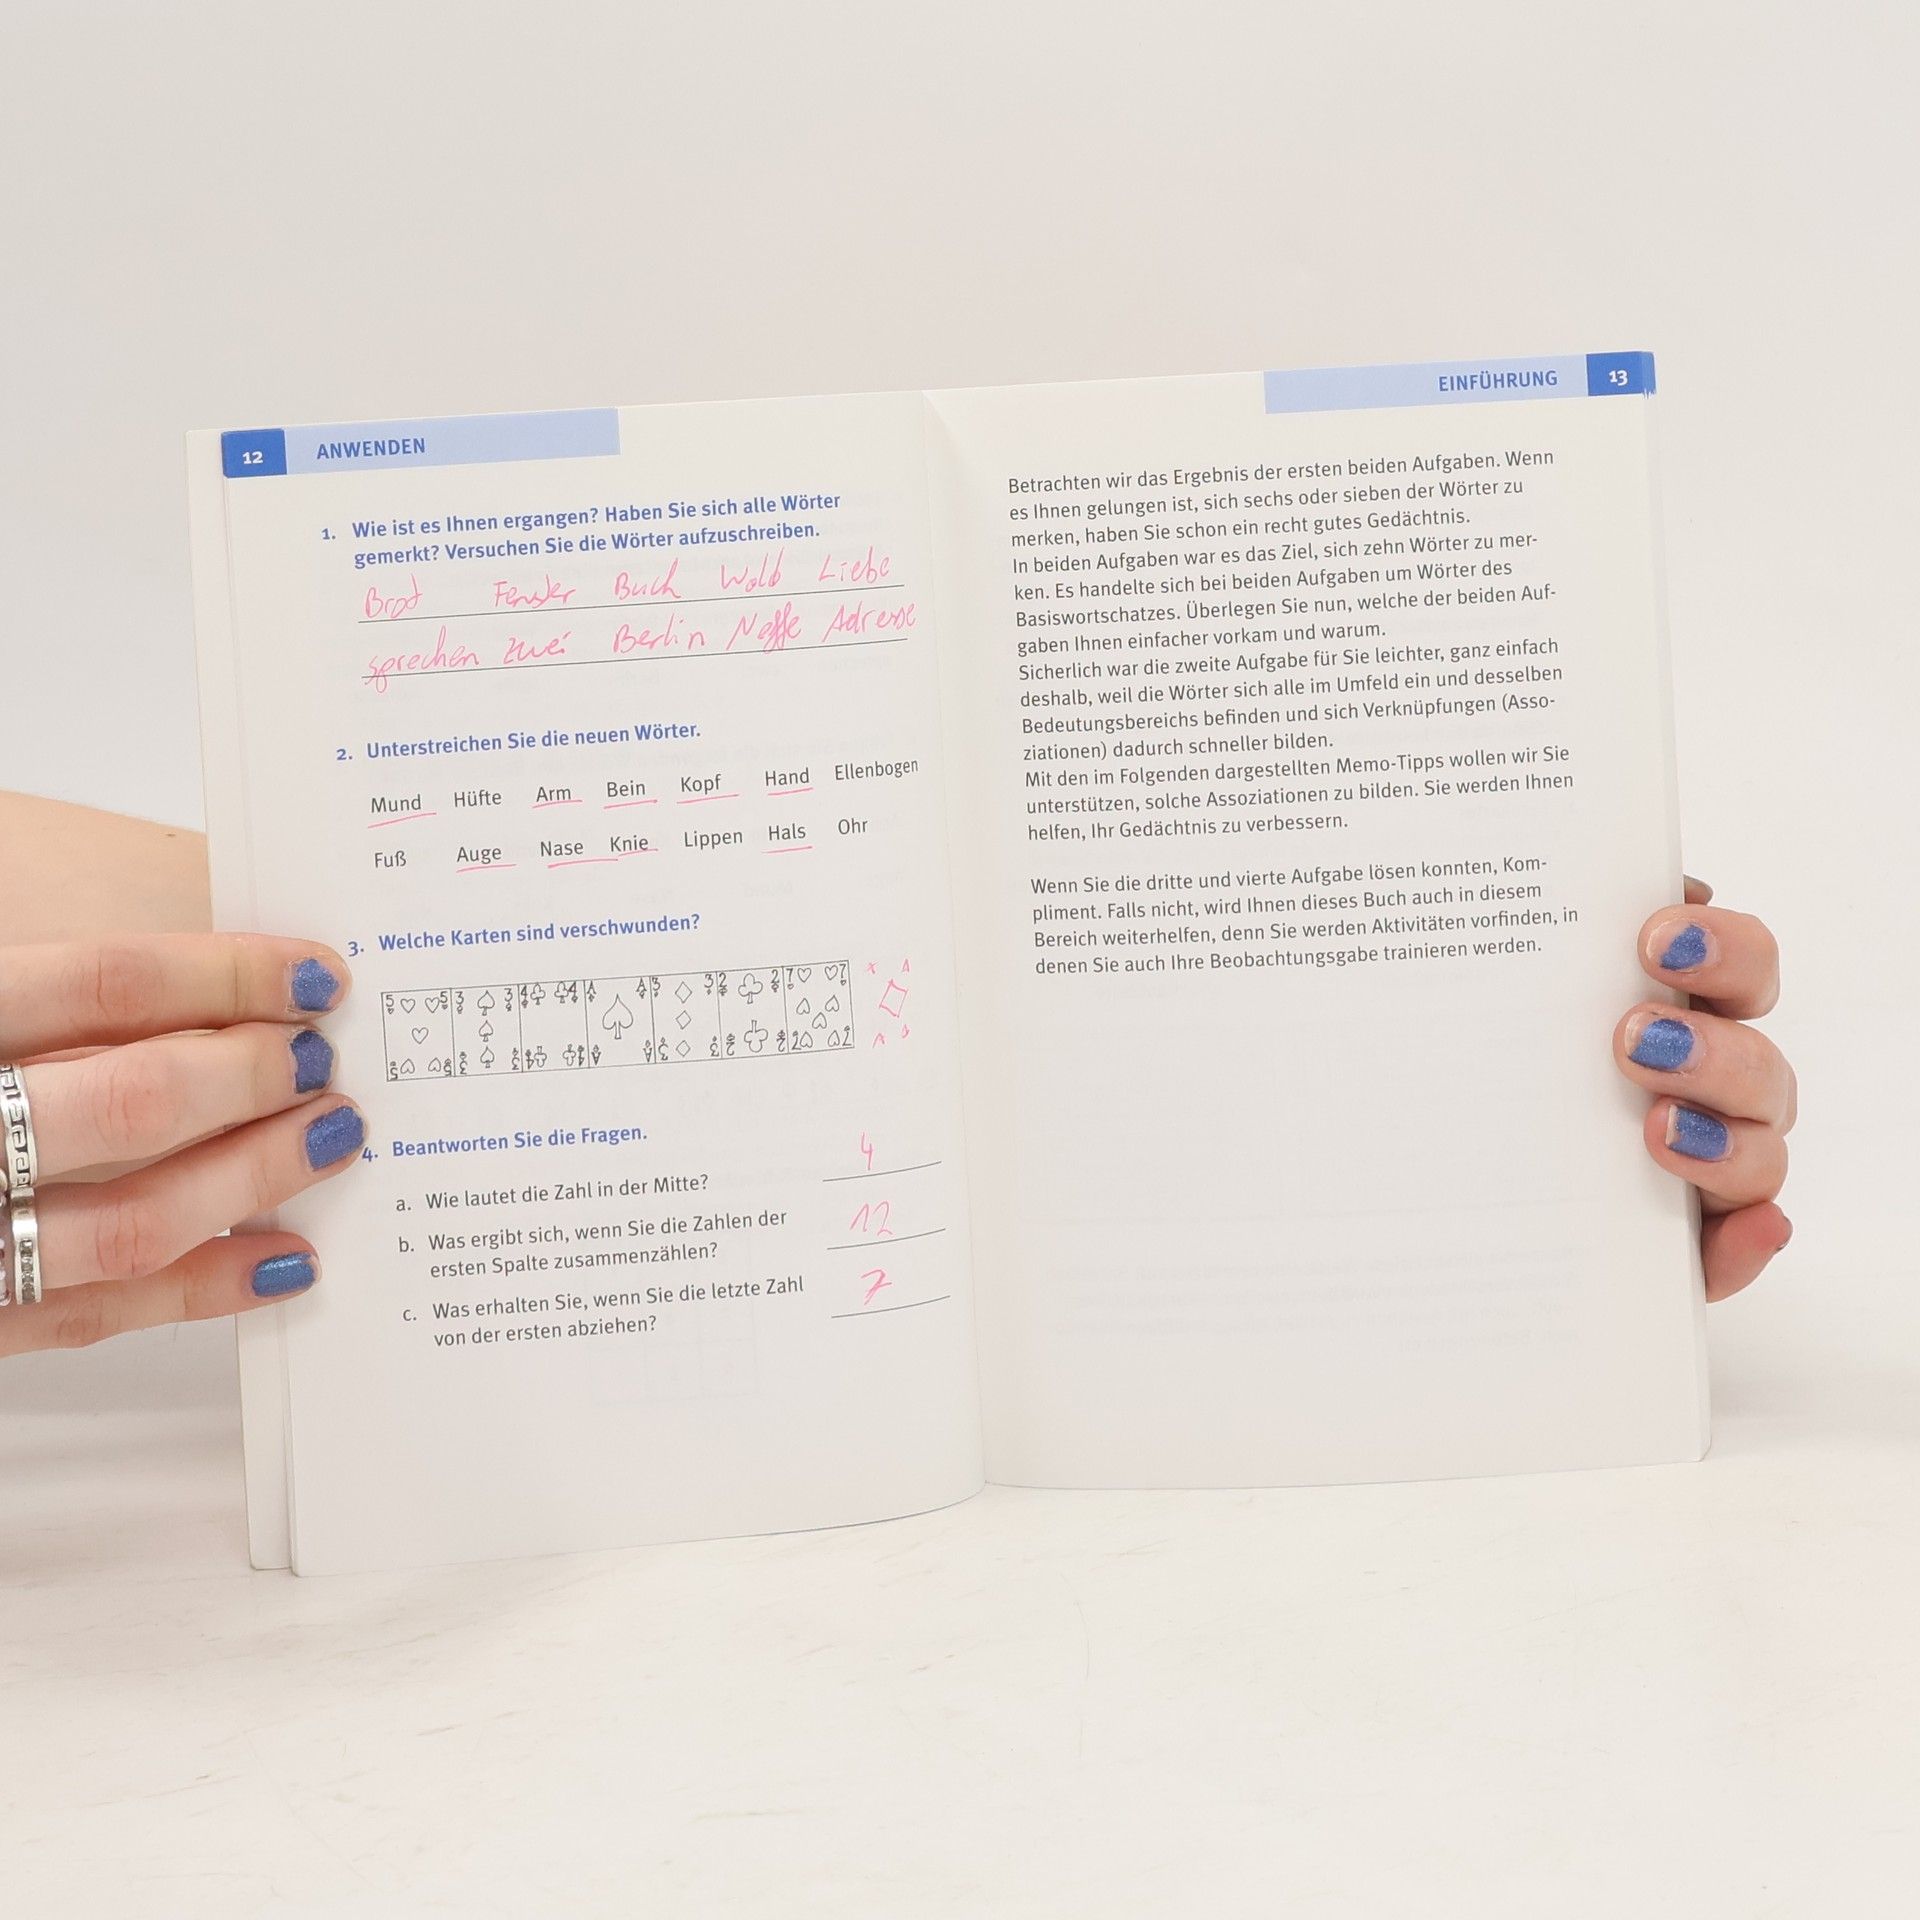 12 ANWENDEN
1. Wie ist es Ihnen ergangen? Haben Sie sich alle Wörter
gemerkt? Versuchen Sie die Wörter aufzuschreiben.
Brot Fenster Buch Wald Liebe
sprechen zwei Berlin Neffe Adresse
2. Unterstreichen Sie die neuen Wörter.
Mund Hüfte Arm Bein Kopf Hand Ellenbogen
Fuß Auge Nase Knie Lippen Hals Ohr
3. Welche Karten sind verschwunden?
5 5 3 3 4 4 A A 3 3 2 2 7 7
5 5 3 3 4 4 A A 3 3 2 2 7 7
4. Beantworten Sie die Fragen.
a. Wie lautet die Zahl in der Mitte? 4
b. Was ergibt sich, wenn Sie die Zahlen der
ersten Spalte zusammenzählen? 12
c. Was erhalten Sie, wenn Sie die letzte Zahl
von der ersten abziehen? 7
EINFÜHRUNG 13
Betrachten wir das Ergebnis der ersten beiden Aufgaben. Wenn
es Ihnen gelungen ist, sich sechs oder sieben der Wörter zu
merken, haben Sie schon ein recht gutes Gedächtnis.
In beiden Aufgaben war es das Ziel, sich zehn Wörter zu mer-
ken. Es handelte sich bei beiden Aufgaben um Wörter des
Basiswortschatzes. Überlegen Sie nun, welche der beiden Auf-
gaben Ihnen einfacher vorkam und warum.
Sicherlich war die zweite Aufgabe für Sie leichter, ganz einfach
deshalb, weil die Wörter sich alle im Umfeld ein und desselben
Bedeutungsbereichs befinden und sich Verknüpfungen (Asso-
ziationen) dadurch schneller bilden.
Mit den im Folgenden dargestellten Memo-Tipps wollen wir Sie
unterstützen, solche Assoziationen zu bilden. Sie werden Ihnen
helfen, Ihr Gedächtnis zu verbessern.
Wenn Sie die dritte und vierte Aufgabe lösen konnten, Kom-
pliment. Falls nicht, wird Ihnen dieses Buch auch in diesem
Bereich weiterhelfen, denn Sie werden Aktivitäten vorfinden, in
denen Sie auch Ihre Beobachtungsgabe trainieren werden.